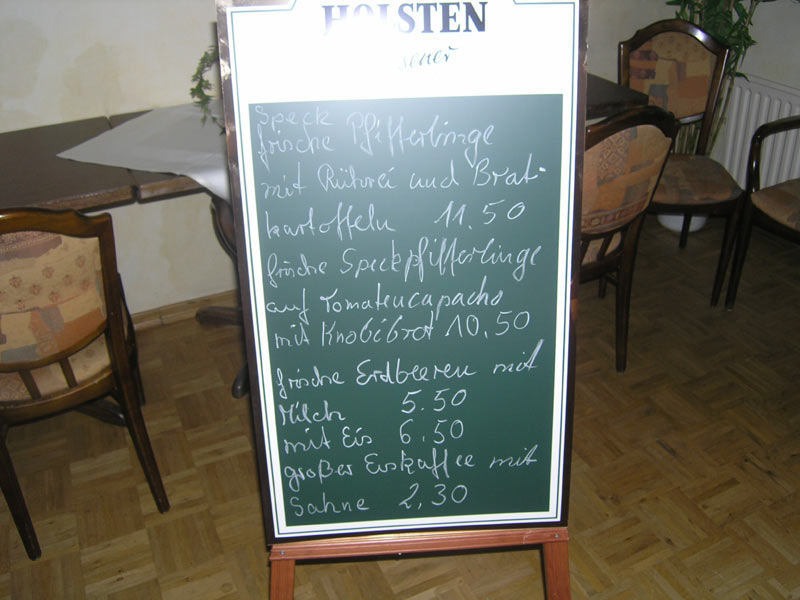 HOLSTEN
Speck
frische Pfifferlinge
mit Rührei und Brat-
kartoffeln 11.50
frische Speckpfifferlinge
auf Tomatencapacho
mit Knobibrot 10.50
frische Erdbeeren mit
Milch 5.50
mit Eis 6.50
großer Eiskaffee mit
Sahne 2,30